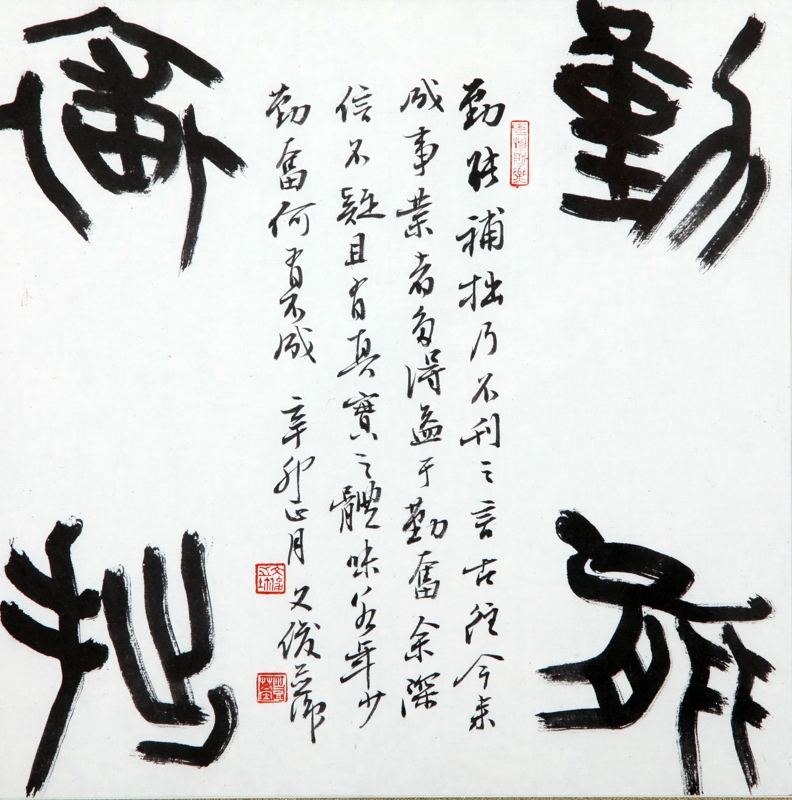 勤能
補拙
勤能補拙乃不刊之言古往今来
成事業者多得益于勤奮余深
信不疑且有真實之體味若年少
勤奮何有不成 辛卯正月